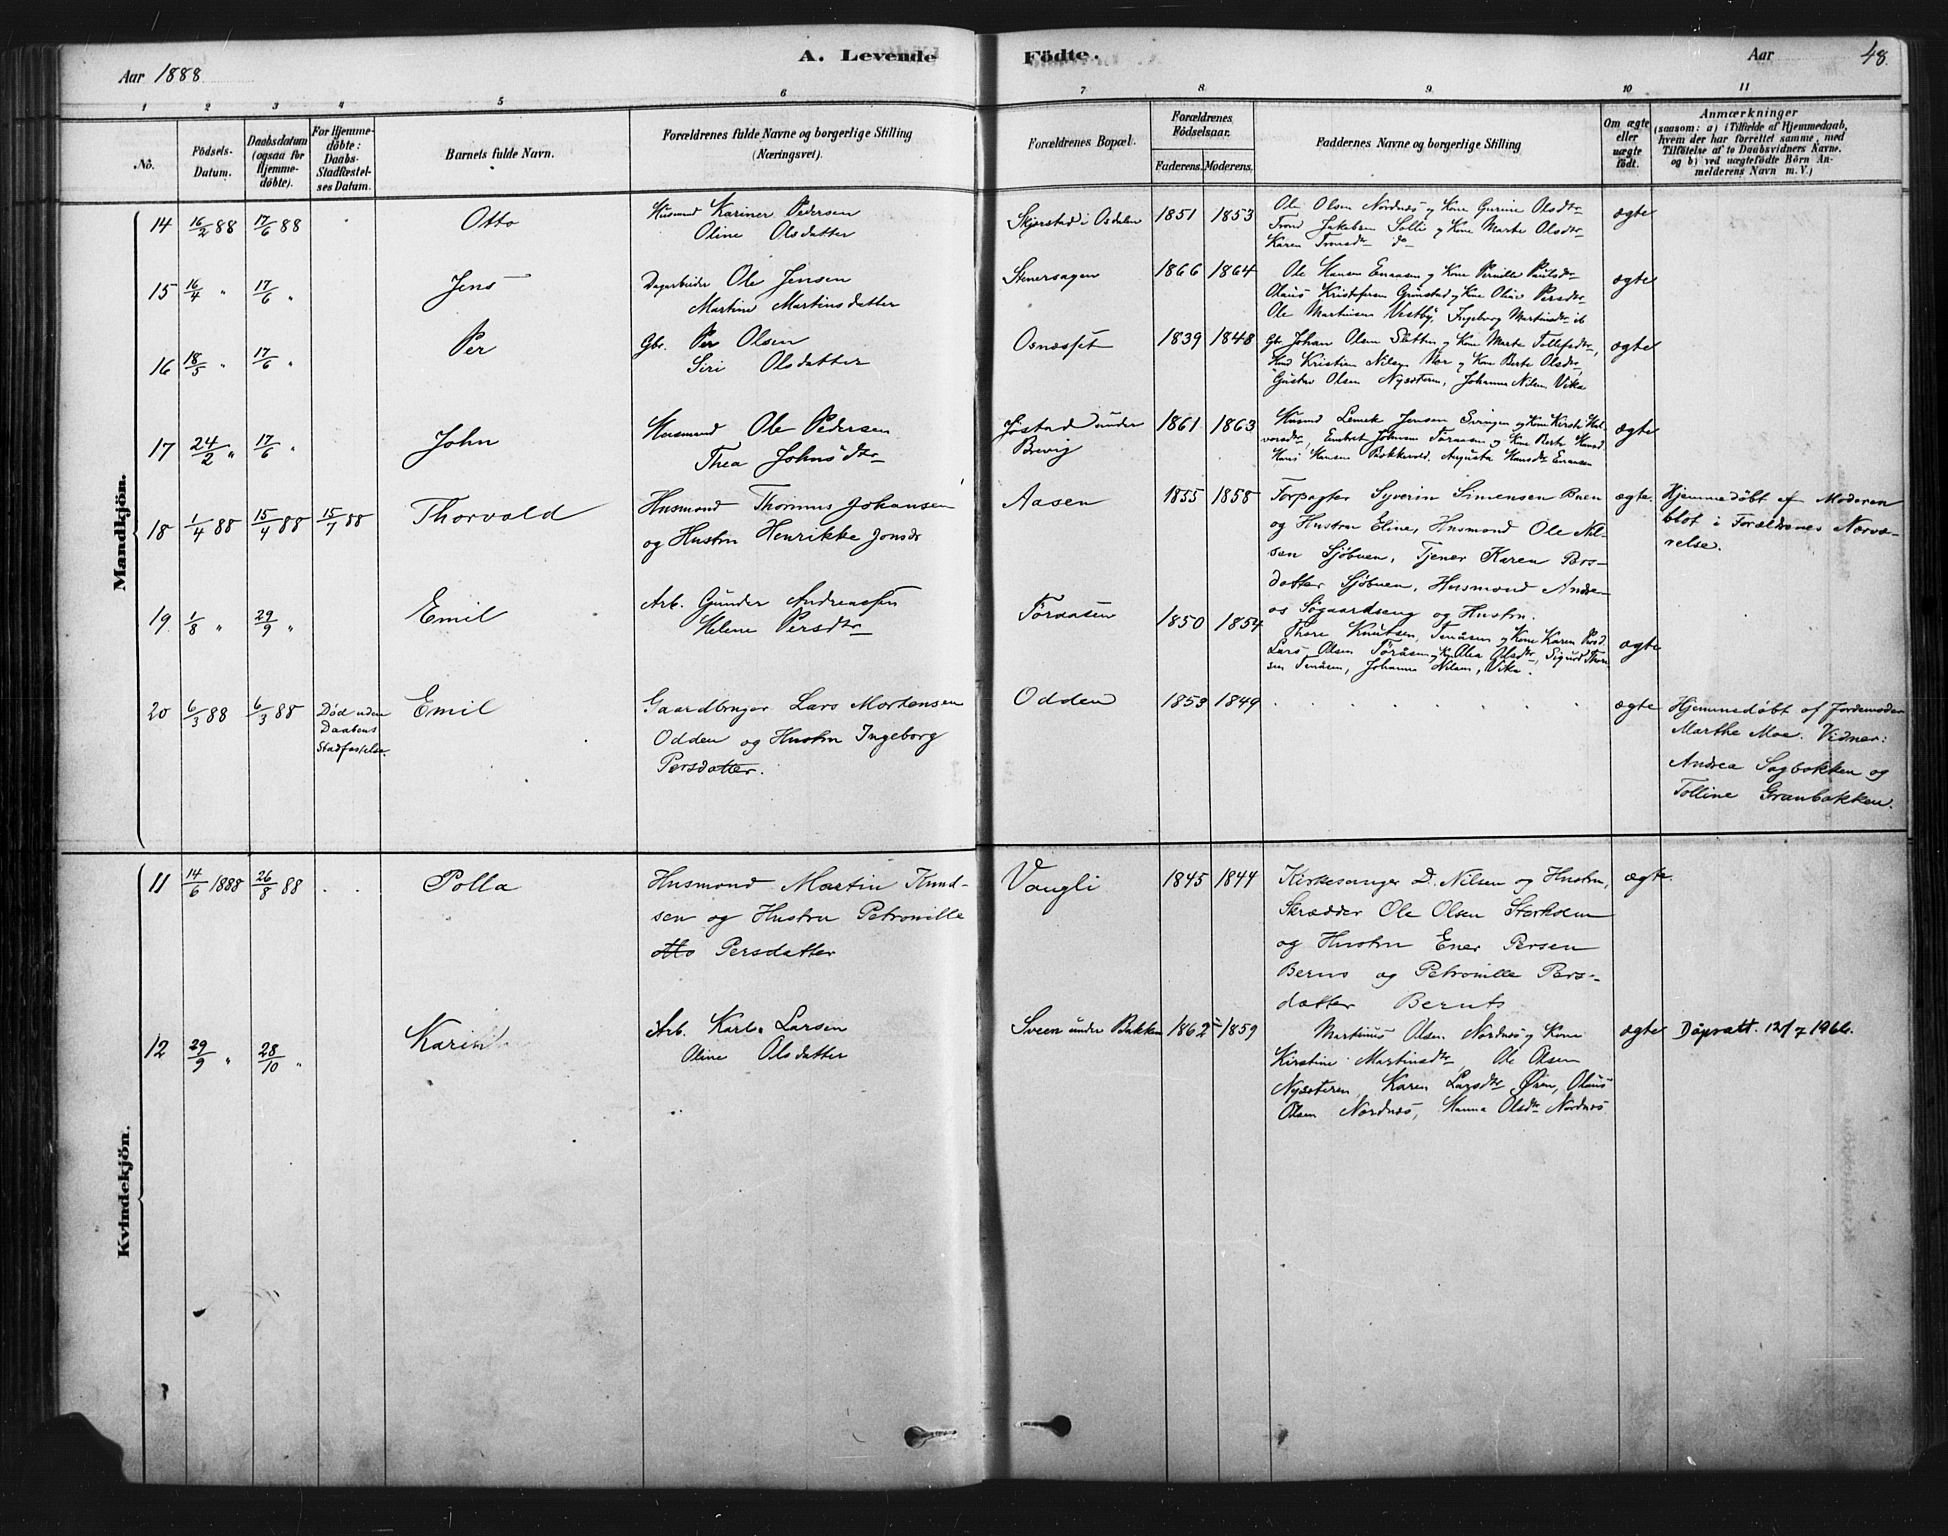 A. Levende Födte.
Aar 1888
Aar
48.
1 2 3 4 5 6 7 8 9 10 11
No.
Födsels-Datum.
Daabsdatum (ogsaa for Hjemme-döbte).
For Hjemme-döbte: Daabs-Stadfæstel-ses Datum.
Barnets fulde Navn.
Forældrenes fulde Navne og borgerlige Stilling (Næringsvei).
Forældrenes Bopæl.
Forældrenes Födselsaar.
Faderens. Moderens.
Faddernes Navne og borgerlige Stilling
Om ægte eller uægte födt.
Anmærkninger
(saasom: a) i Tilfælde af Hjemmedaab,
hvem der har forrettet samme, med
Tilföielse af to Daabsvidners Navne,
og b) ved uægtefödte Börn An-
melderens Navn m. V.)
Mandkjön.
14 16/2 88 17/6 88 Otto Husmand Kariner Pedersen
Oline Olsdatter
Skjerstad i Osdalen 1851 1853
Ole Olsen Nordnæs og Kone Gurine Olsdtr
Trond Jakobsen Solli og Kone Marte Olsdtr
Karen Tronsdtr do
ægte
15 16/4 " 17/6 " Jens Dagarbeider Ole Jensen
Martine Martinsdatter
Stenersagen 1866 1864
Ole Hansen Enaasen og Kone Pernille Paulsdtr
Olaus Kristofersen Grönstad og Kone Oline Persdtr
Ole Martinsen Vestby, Ingeborg Martinsdtr ib
ægte
16 18/5 " 17/6 " Per Gbr. Per Olsen
Siri Olsdatter
Osnæsset 1839 1848
Gb. Johan Olsen Sletten og Kone Marte Tollefsdtr,
Kristian Nilsen Mor og Kone Berte Olsdtr,
Gustav Olsen Nysæteren, Johanne Nilsen Vika
ægte
17 24/2 " 17/6 " John Husmand Ole Pedersen
Thea Johnsdtr
Jostad under
Brevig
1861 1863
Husmd Lemek Jensen Svingen og Kone Kirsti Hal-
vorsdtr, Embret Johnsen Föraasen og Kone Berte Hansd.
Hans Hansen Bakkevold, Augusta Hansdtr Enaasen
ægte
18 1/4 88 15/4 88 15/7 88 Thorvald Husmand Thomas Johansen
og Hustru Henrikke Jonsdr
Aasen 1855 1858
Forpagter Syverin Simensen Buen
og Hustru Eline, Husmand Ole Nil-
sen Sjöbuen, Tjener Karen Pers-
datter Sjöbuen, Husmand Andre-
as Søgaardseng og Hustru.
ægte
Hjemmedøbt af Moderen
blot i Forældrenes Nærvæ-
relse.
19 1/8 " 29/9 " Emil Arb. Gunder Andreassen
Helene Persdtr
Föraasen 1850 1854
Thore Knutsen, Tenåsen og Kone Karen Persd.
Lars Olsen Föråsen, og K. Olea Olsdtr, Sigurd Thor-
sen Tenåsen, Johanne Nilsen, Vika.
ægte
20 6/3 88 6/3 88 Død uden
Daabens
Stadfæstelse.
Emil Gaardbruger Lars Mortensen
Odden og Hustru Ingeborg
Persdatter.
Odden 1853 1849 ægte
Hjemmedøbt af Jordemoder
Marthe Moe. Vidner:
Andrea Sagbakken og
Tolline Granbakken.
Kvindekjön.
11 14/6 1888 26/8 88 Polla Husmand Martin Knud-
sen og Hustru Petronille
Persdatter
Vangli 1845 1844
Kirkesanger D. Nilsen og Hustru,
Skrædder Ole Olsen Storholm
og Hustru Ener Persen
Berns og Petronille Pers-
datter Bernts
ægte.
12 29/9 " 28/10 " Arb. Karl Larsen
Oline Olsdatter
Sveen under Bakken 1862 1859
Martinus Olsen Nordnæs og Kone
Kirstine Martinsdtr Ole Olsen
Nysæteren, Karen Larsdtr Øien, Olaus
Olsen Nordnæs, Hanna Olsdtr Nordnæs
ægte Dåpsatt. 12/7 1966.